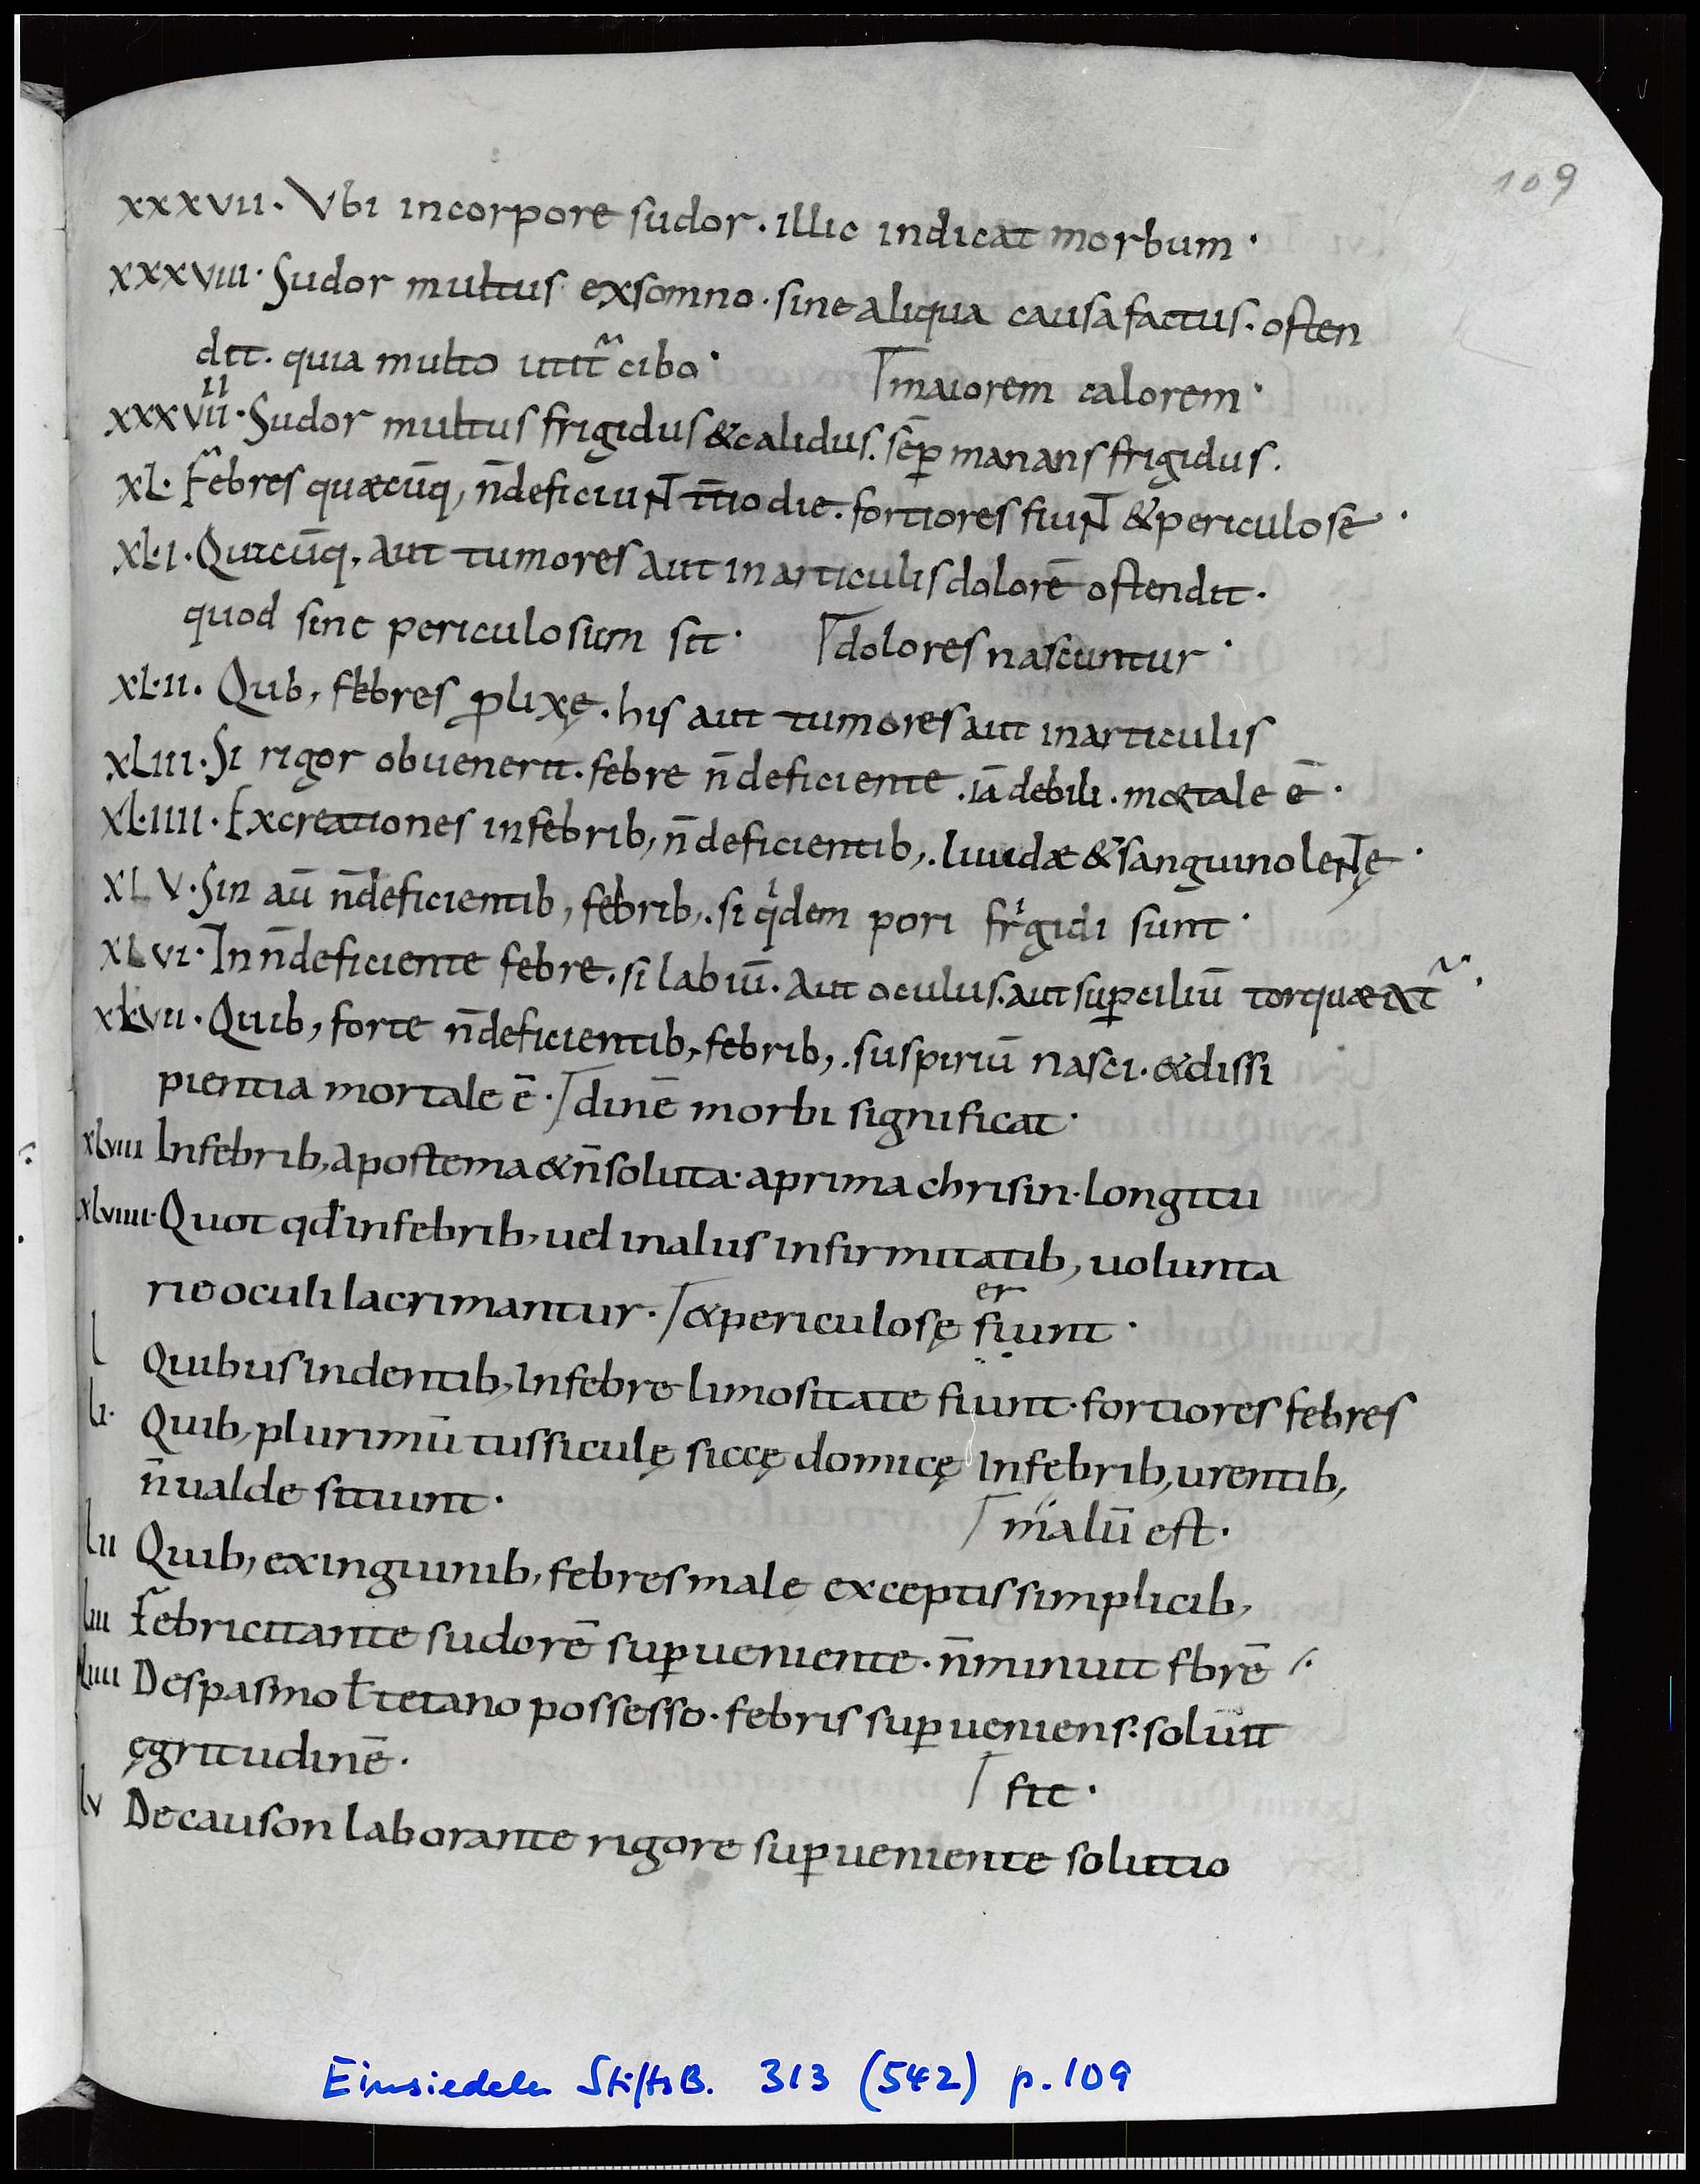 109
xxxvii. Vbi incorpore sudor. illic indicat morbum.
xxxviii. Sudor multus exsomno. sine aliqua causa factus. osten
dit. quia multo utit᷑ cibo. maiorem calorem.
xxxvii. ii Sudor multus frigidus & calidus. sēp manans frigidus.
xl. Febres quæcūq, n̄ deficiunt t̄tio die. fortiores fiunt & periculose.
xl.i. Quicūq, aut tumores aut in articulis dolorē ostendit.
quod sine periculosum sit. dolores nascuntur.
xl.ii. Quib, febres plixę. his aut tumores aut inarticulis
xliii. Si rigor obuenerit. febre n̄ deficiente. iā debili. mortale ē.
xl.iiii. Excreationes infebrib, n̄ deficientib,. liuidæ & sanguinolentę.
xlv. Sin aū n̄ deficientib, febrib,. si qͥdem pori frͥgidi sunt.
xlvi. In n̄ deficiente febre. si labiū. aut oculus. aut supciliū torquæat᷑.
xlvii. Quib, forte n̄ deficientib, febrib,. suspiriū nasci. & dissi
pientia mortale ē. dinē morbi significat.
xlviii Infebrib, apostema & n̄ soluta. aprima chrisin. longitu
xlviiii. Quot qd̄ infebrib, uel inalus infirmitatib, uolunta
rie oculi lacrimantur. & periculosę fiunt. er
l Quibus indentib, Infebre limositate fiunt. fortiores febres
li. Quib, plurimū tussiculę siccę domicę Infebrib, urentib,
n̄ ualde sitiunt. malū est.
lii Quib, exinguinib, febres male exceptis simplicib,
liii Febricitante sudorē supueniente. n̄ minuit fbrē
liiii Despasmo ł tetano possesso. febris supueniens. soluit
ęgritudinē. fit.
lv Decauson laborante rigore supueniente solutio
Einsiedeln StiftsB. 313 (542) p. 109